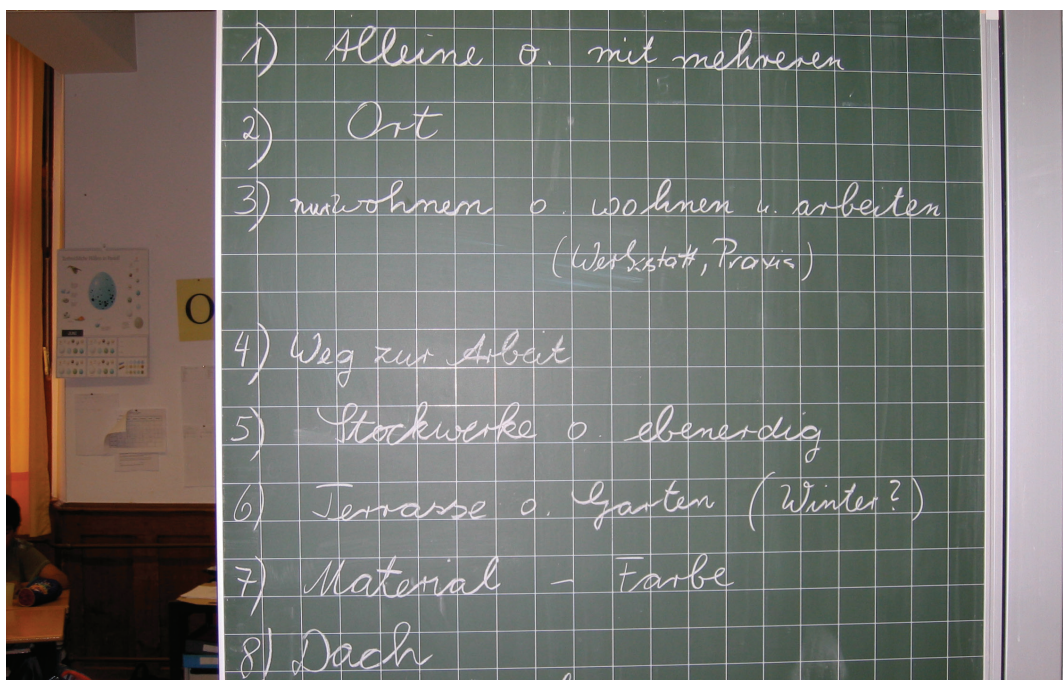 1) Alleine o. mit mehreren
2) Ort
3) nur wohnen o. wohnen u. arbeiten
(Werkstatt, Praxis)
4) Weg zur Arbeit
5) Stockwerke o. ebenerdig
6) Terrasse o. Garten (Winter?)
7) Material – Farbe
8) Dach
O